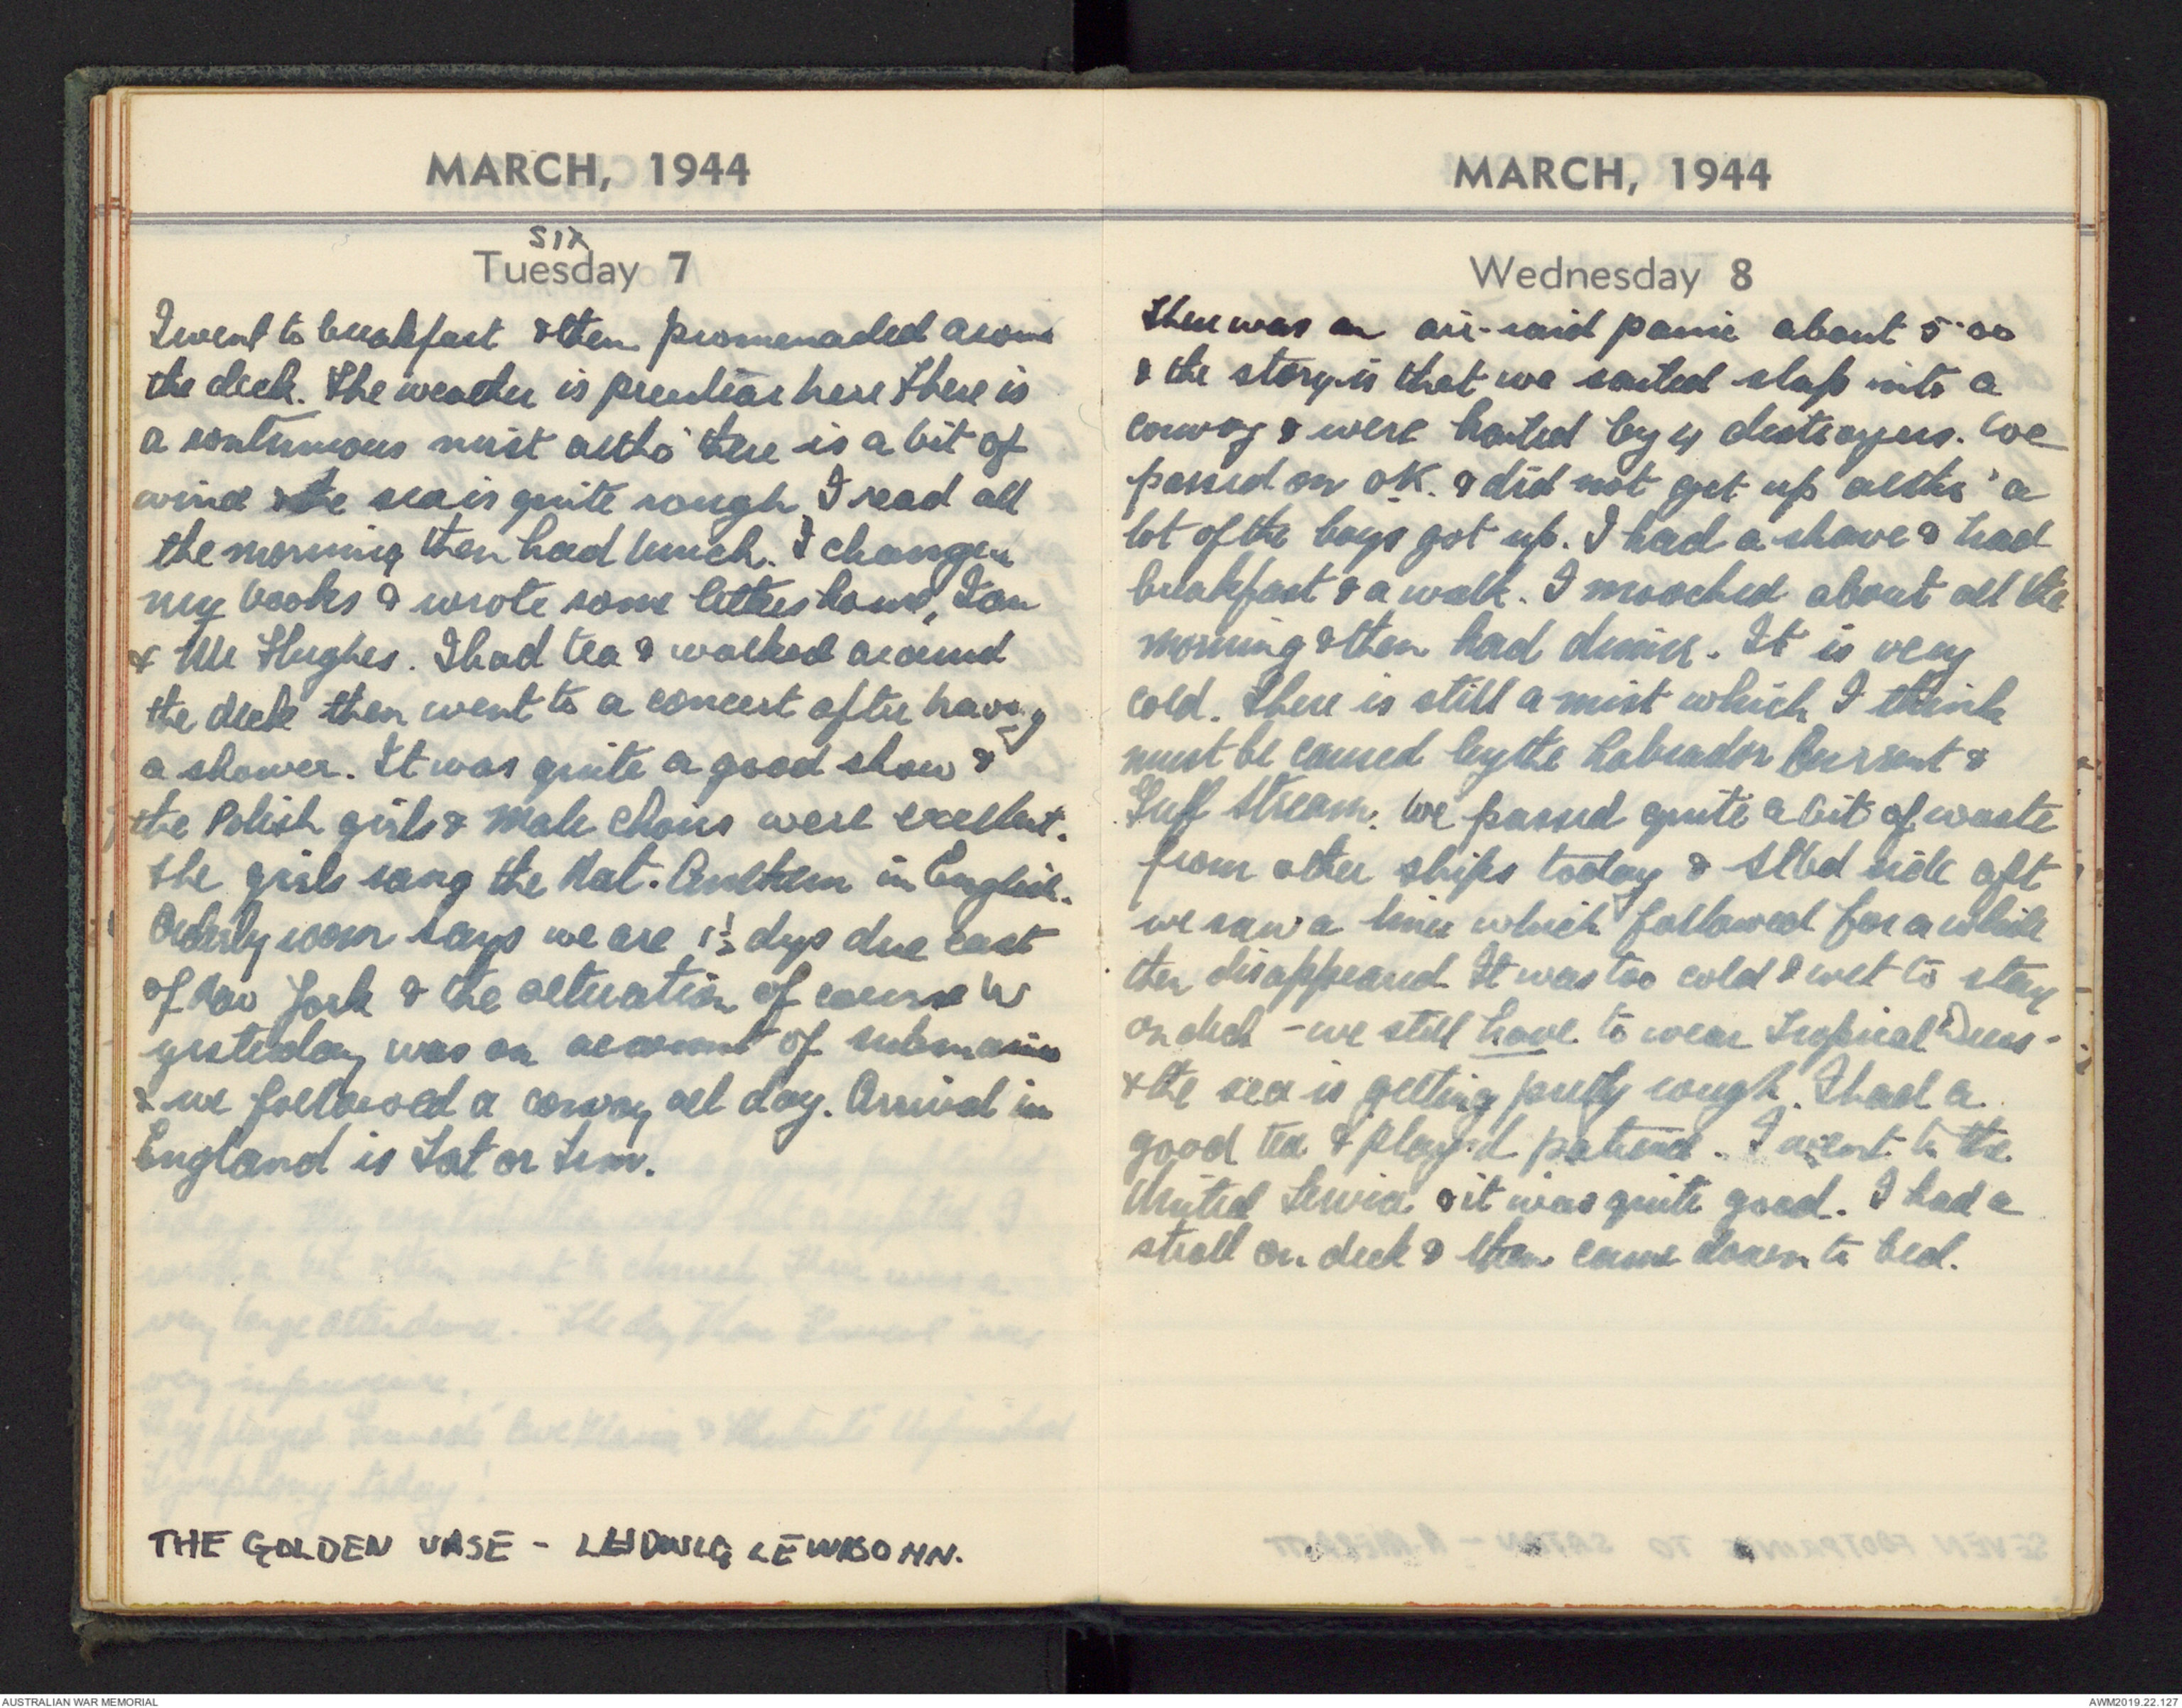 MARCH, 1944
SIX
Tuesday 7
I went to breakfast & then promenaded around
the deck. The weather is peculiar here There is
a continuous mist altho' there is a bit of
wind & the sea is quite rough I read all
the morning then had lunch. I changed
my books & wrote some letters home, Ian
& Mr Hughes. I had tea & walked around
the deck then went to a concert after having
a shower. It was quite a good show &
the Polish girls & Male Choirs were excellent.
The girls sang the Nat. Anthem in English.
Orderly room says we are 1½ dys due east
of New York & the alteration of course W
yesterday was on account of submarines
& we followed a convoy all day. Arrival in
England is Sat or Sun.
THE GOLDEN VASE - LUDWIG LEWISOHN.
MARCH, 1944
Wednesday 8
There was an air-raid panic about 5.00
& the story is that we sailed slap into a
convoy & were halted by 4 destroyers. We
passed on OK. & did not get up altho' a
lot of the boys got up. I had a shave & had
breakfast & a walk. I mooched about all the
morning & then had dinner. It is very
cold. There is still a mist which I think
must be caused by the Labrador Current &
Gulf Stream. We passed quite a bit of waste
from other ships today & Stbd side aft
we saw a liner which followed for a while
then disappeared It was too cold & wet to stay
on deck - we still have to wear Tropical Dress -
& the sea is getting pretty rough. I had a
good tea & played patience. I went to the
United Service & it was quite good. I had a
stroll on deck & then came down to bed.
AUSTRALIAN WAR MEMORIAL
AWM2019.22.127